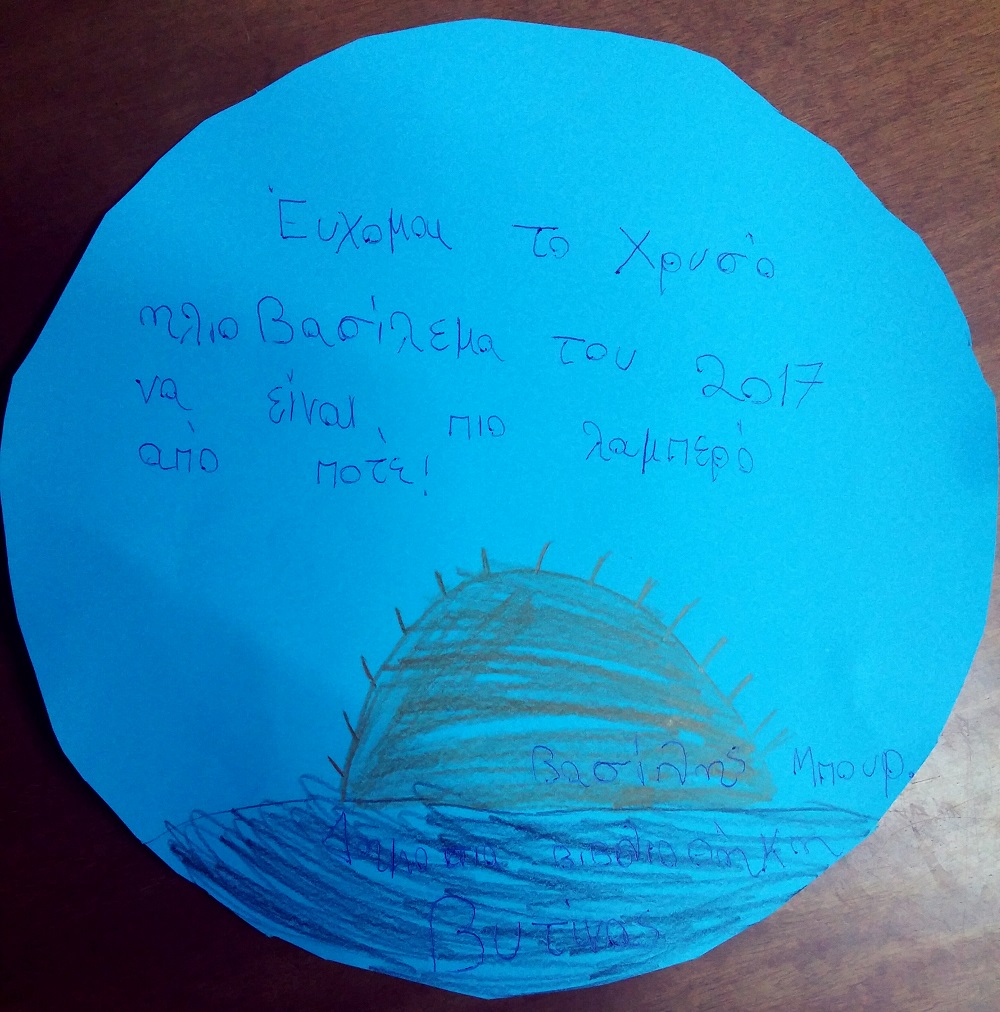 Έυχομαι το Χρυσό
ηλιοΒασίλεμα του 2017
να είναι πιο λαμπερό
από ποτέ!
Βασίλης Μπουρ.
Δημοσια βιβλιοθήκη
Βυτίνας